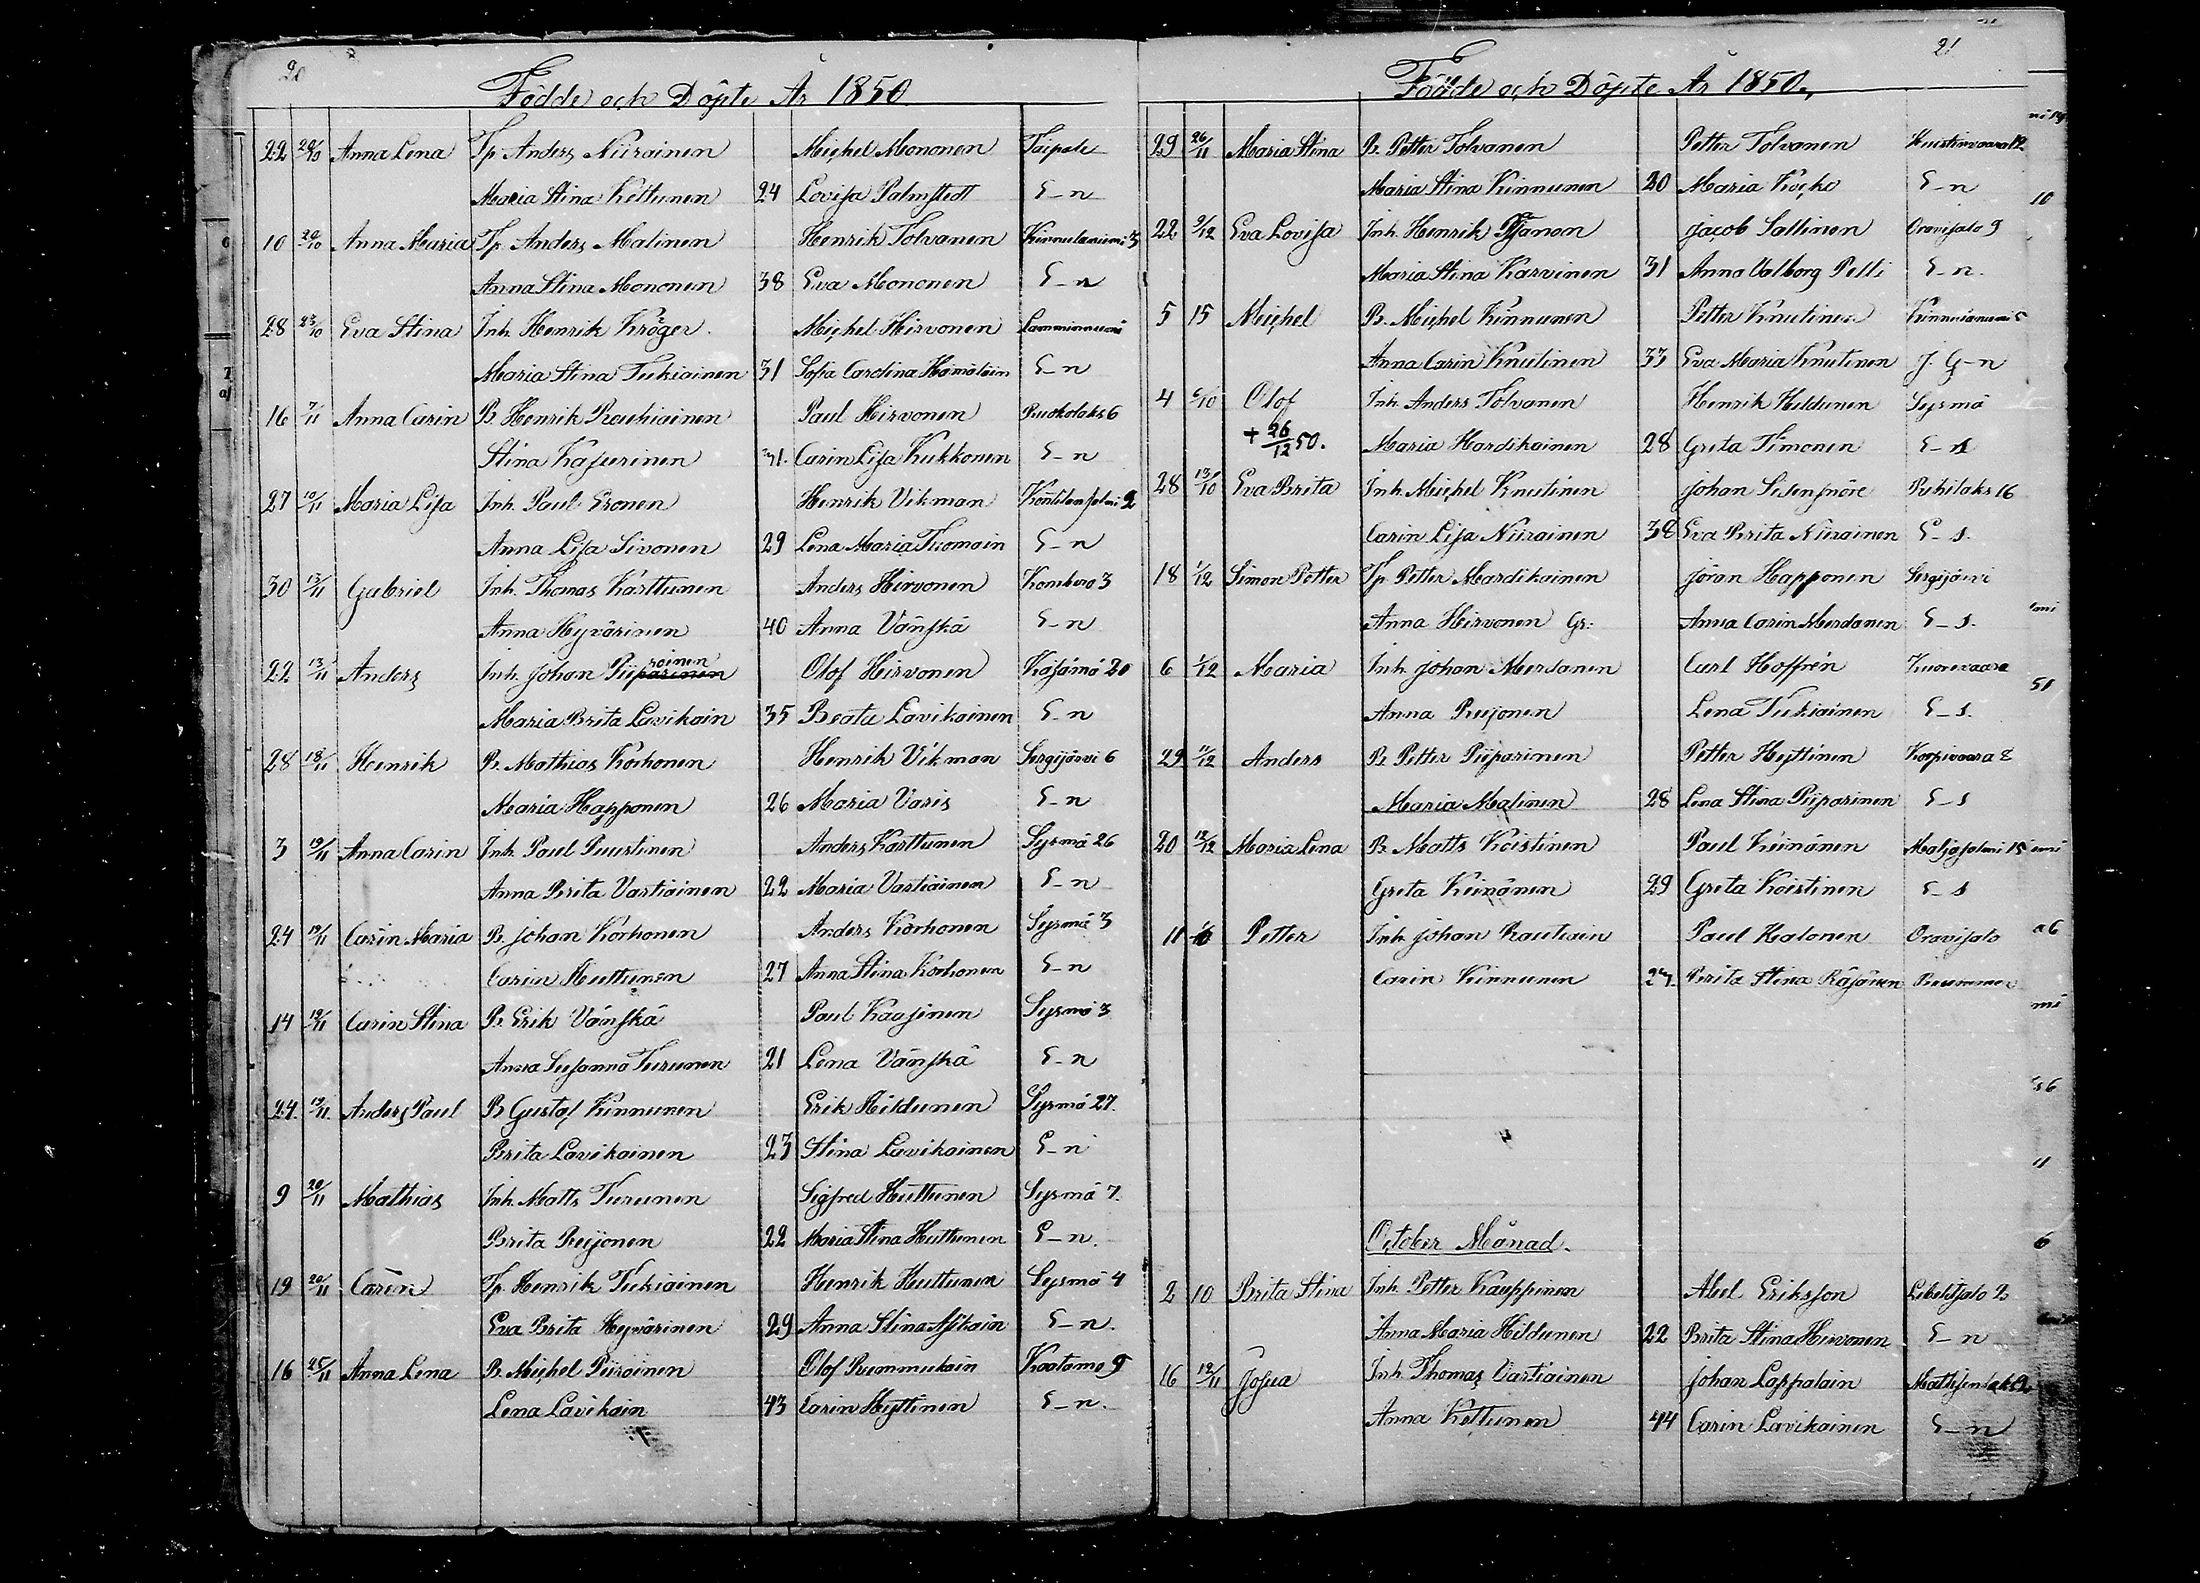 20
Födde och Döpte År 1850
22 20/10 Anna Lena Tp. Anders Niiroinen Michel Mononen Taipale
Maria Stina Kettunen 24 Lovisa Palmstedt E-n
10 20/10 Anna Maria Tp. Anders Malinen Henrik Tolvanen Kinnulaniemi 3
Anna Stina Mononen 38 Eva Mononen E-n
28 23/10 Eva Stina Inh. Henrik Kröger Michel Hirvonen
Maria Stina Tukiainen 31 Sofia Carolina Hämäläin E-n
16 7/11 Anna Carin B. Henrik Rautiainen Paul Hirvonen Ruokolaks 6
Stina Kasurinen 41. Carin Lisa Kukkonen E-n
27 10/11 Maria Lisa Inh. Paul Eronen Henrik Vikman 2
Anna Lisa Sivonen 29 Lena Maria Tuomain E-n
30 13/11 Gabriel Inh. Thomas Karttunen Anders Hirvonen Kombero 3
Anna Hyvärinen 40 Anna Vänskä E-n
22 13/11 Anders Inh. Johan Piiroinen Olof Hirvonen Käsämä 20
Maria Brita Lavikain 35 Beata Lavikainen E-n
28 18/11 Henrik B. Mathias Korhonen Henrik Vikman Sergijärvi 6
Maria Happonen 26 Maria Varis E-n
3 19/11 Anna Carin Inh. Paul Puustinen Anders Karttunen Sysmä 26
Anna Brita Vartiainen 22 Maria Vartiainen E-n
24 19/11 Carin Maria B. Johan Korhonen Anders Korhonen Sysmä 3
Carin Huttunen 27 Anna Stina Korhonen E-n
14 19/11 Carin Stina B. Erik Vänskä Paul Kaasinen Sysmä 3
Anna Susanna Turunen 21 Lena Vänskä E-n
24. 19/11. Anders Paul B Gustaf Kinnunen Erik Hildunen Sysmä 27.
Brita Lavikainen 23 Stina Lavikainen E-n
9 20/11 Mathias Inh. Matts Turunen Sigfred Huttunen Sysmä 7.
Brita Reijonen 22 Maria Stina Huttunen E-n.
19 20/11 Carin Tp. Henrik Tukiainen Henrik Huttunen Sysmä 4
Eva Brita Hyvärinen 29 Anna Stina Asikain E-n.
16 25/11 Anna Lena B. Michel Piiroinen Olof Rummukain Kaatamo 9
Lena Lavikain 43 Carin Hyttinen E-n.
21
Födde och Döpte År 1850.
29 26/11 Maria Stina B. Petter Tolvanen Petter Tolvanen
Maria Stina Kinnunen 20 Maria E-n
22 9/12 Eva Lovisa Inh. Henrik Jacob Sallinen Oravisalo 9
Maria Stina Karvinen 31 Anna Valborg Pelli E-n.
5 15 Michel B. Michel Kinnunen Petter Knutinen
Anna Carin Knutinen 33 Eva Maria Knutinen J. G-n
4 6/10 Olof Inh. Anders Tolvanen Henrik Hildunen Sysmä
+ 26/12 50. Maria Hardikainen 28 Greta Timonen E-s
28 13/10 Eva Brita Inh. Michel Knutinen Johan Puhilaks 16
Carin Lisa Niiroinen 38 Eva Brita Niiroinen E-s.
18 1/12 Simon Petter Tp. Petter Mardikainen Jöran Happonen Sergijärvi
Anna Hirvonen Gr: Anna Carin Mersdanen E-s.
6 1/12 Maria Inh. Johan Mersdanen Carl Hoffrén
Anna Reijonen Lena Tukiainen E-s.
29 11/12 Anders B. Petter Piiparinen Petter Hyttinen Korpivaara 8
Maria Malinen 28 Lena Stina Piiparinen E-s
20 12/12 Maria Lena B. Matts Koistinen Paul Keinänen Maljasalmi 15
Greta Keinänen 29 Greta Koistinen E-s
11 Petter Inh. Johan Rautiain Paul Halonen Oravisalo
Carin Kinnunen 27. Brita Stina Räsänen
October Månad.
2 10 Brita Stina Inh. Petter Kauppinen Abel Eriksson
Anna Maria Hildunen 22 Brita Stina Hirvonen E-n
16 12/11 Josua Inh. Thomas Vartiainen Johan Lappalain
Anna Kettunen 44 Carin Lavikainen E-n